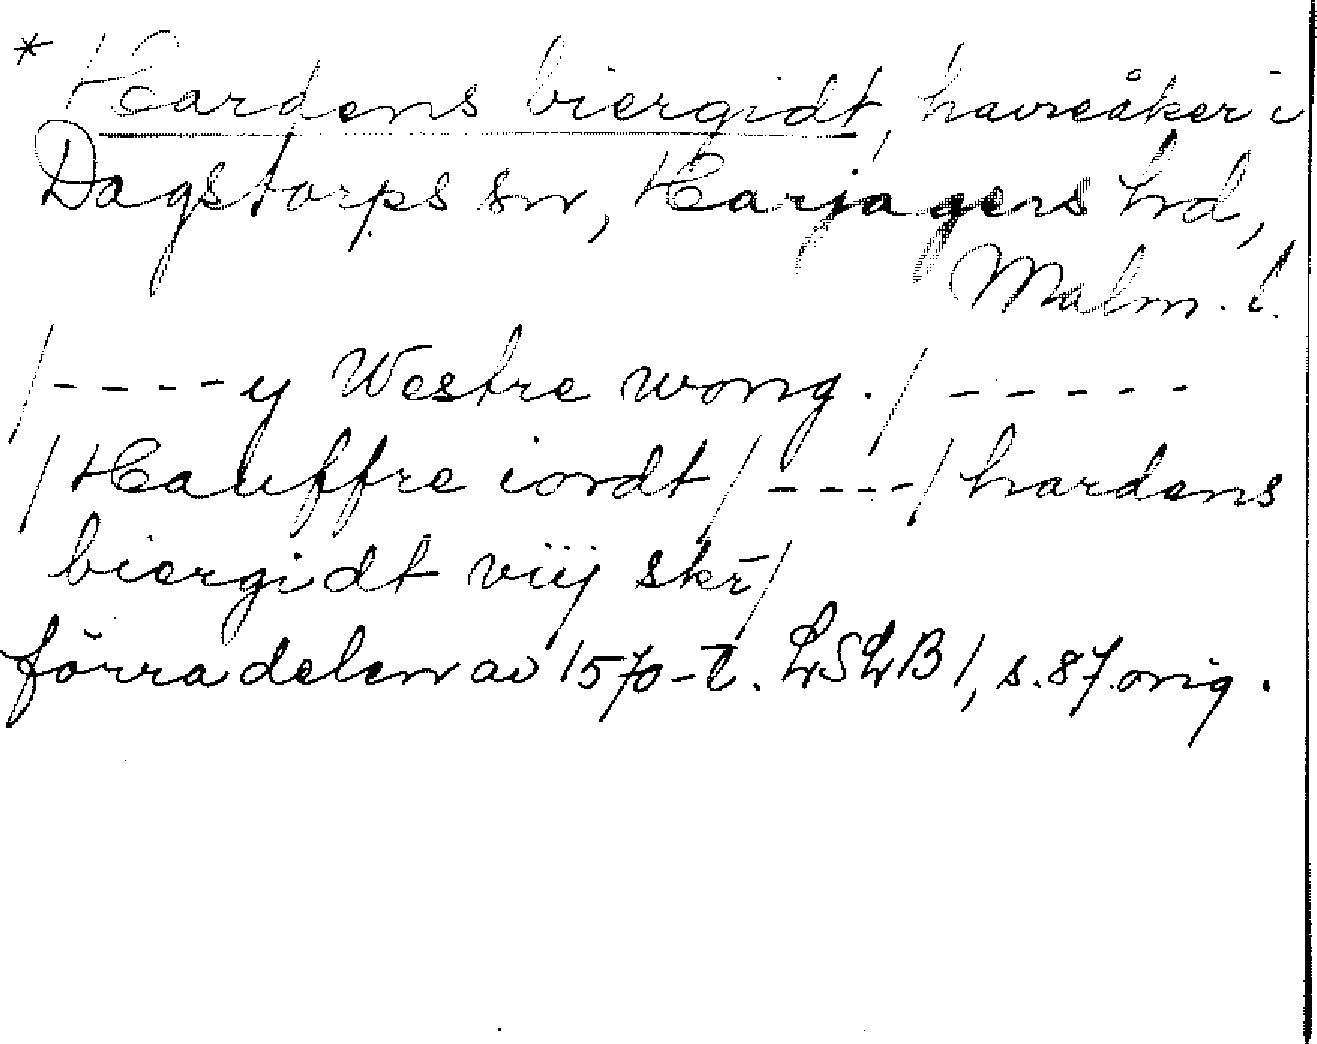 * Hardens biergidt, havreåker i
Dagstorps sn, Harjagers hd,
Malm. l.
/----y Westre wong./ -----
/Hauffre iordt/----/hardens
biergidt viij skr̄/
förra delen av 1570-t. LSLB 1, s.87.orig.